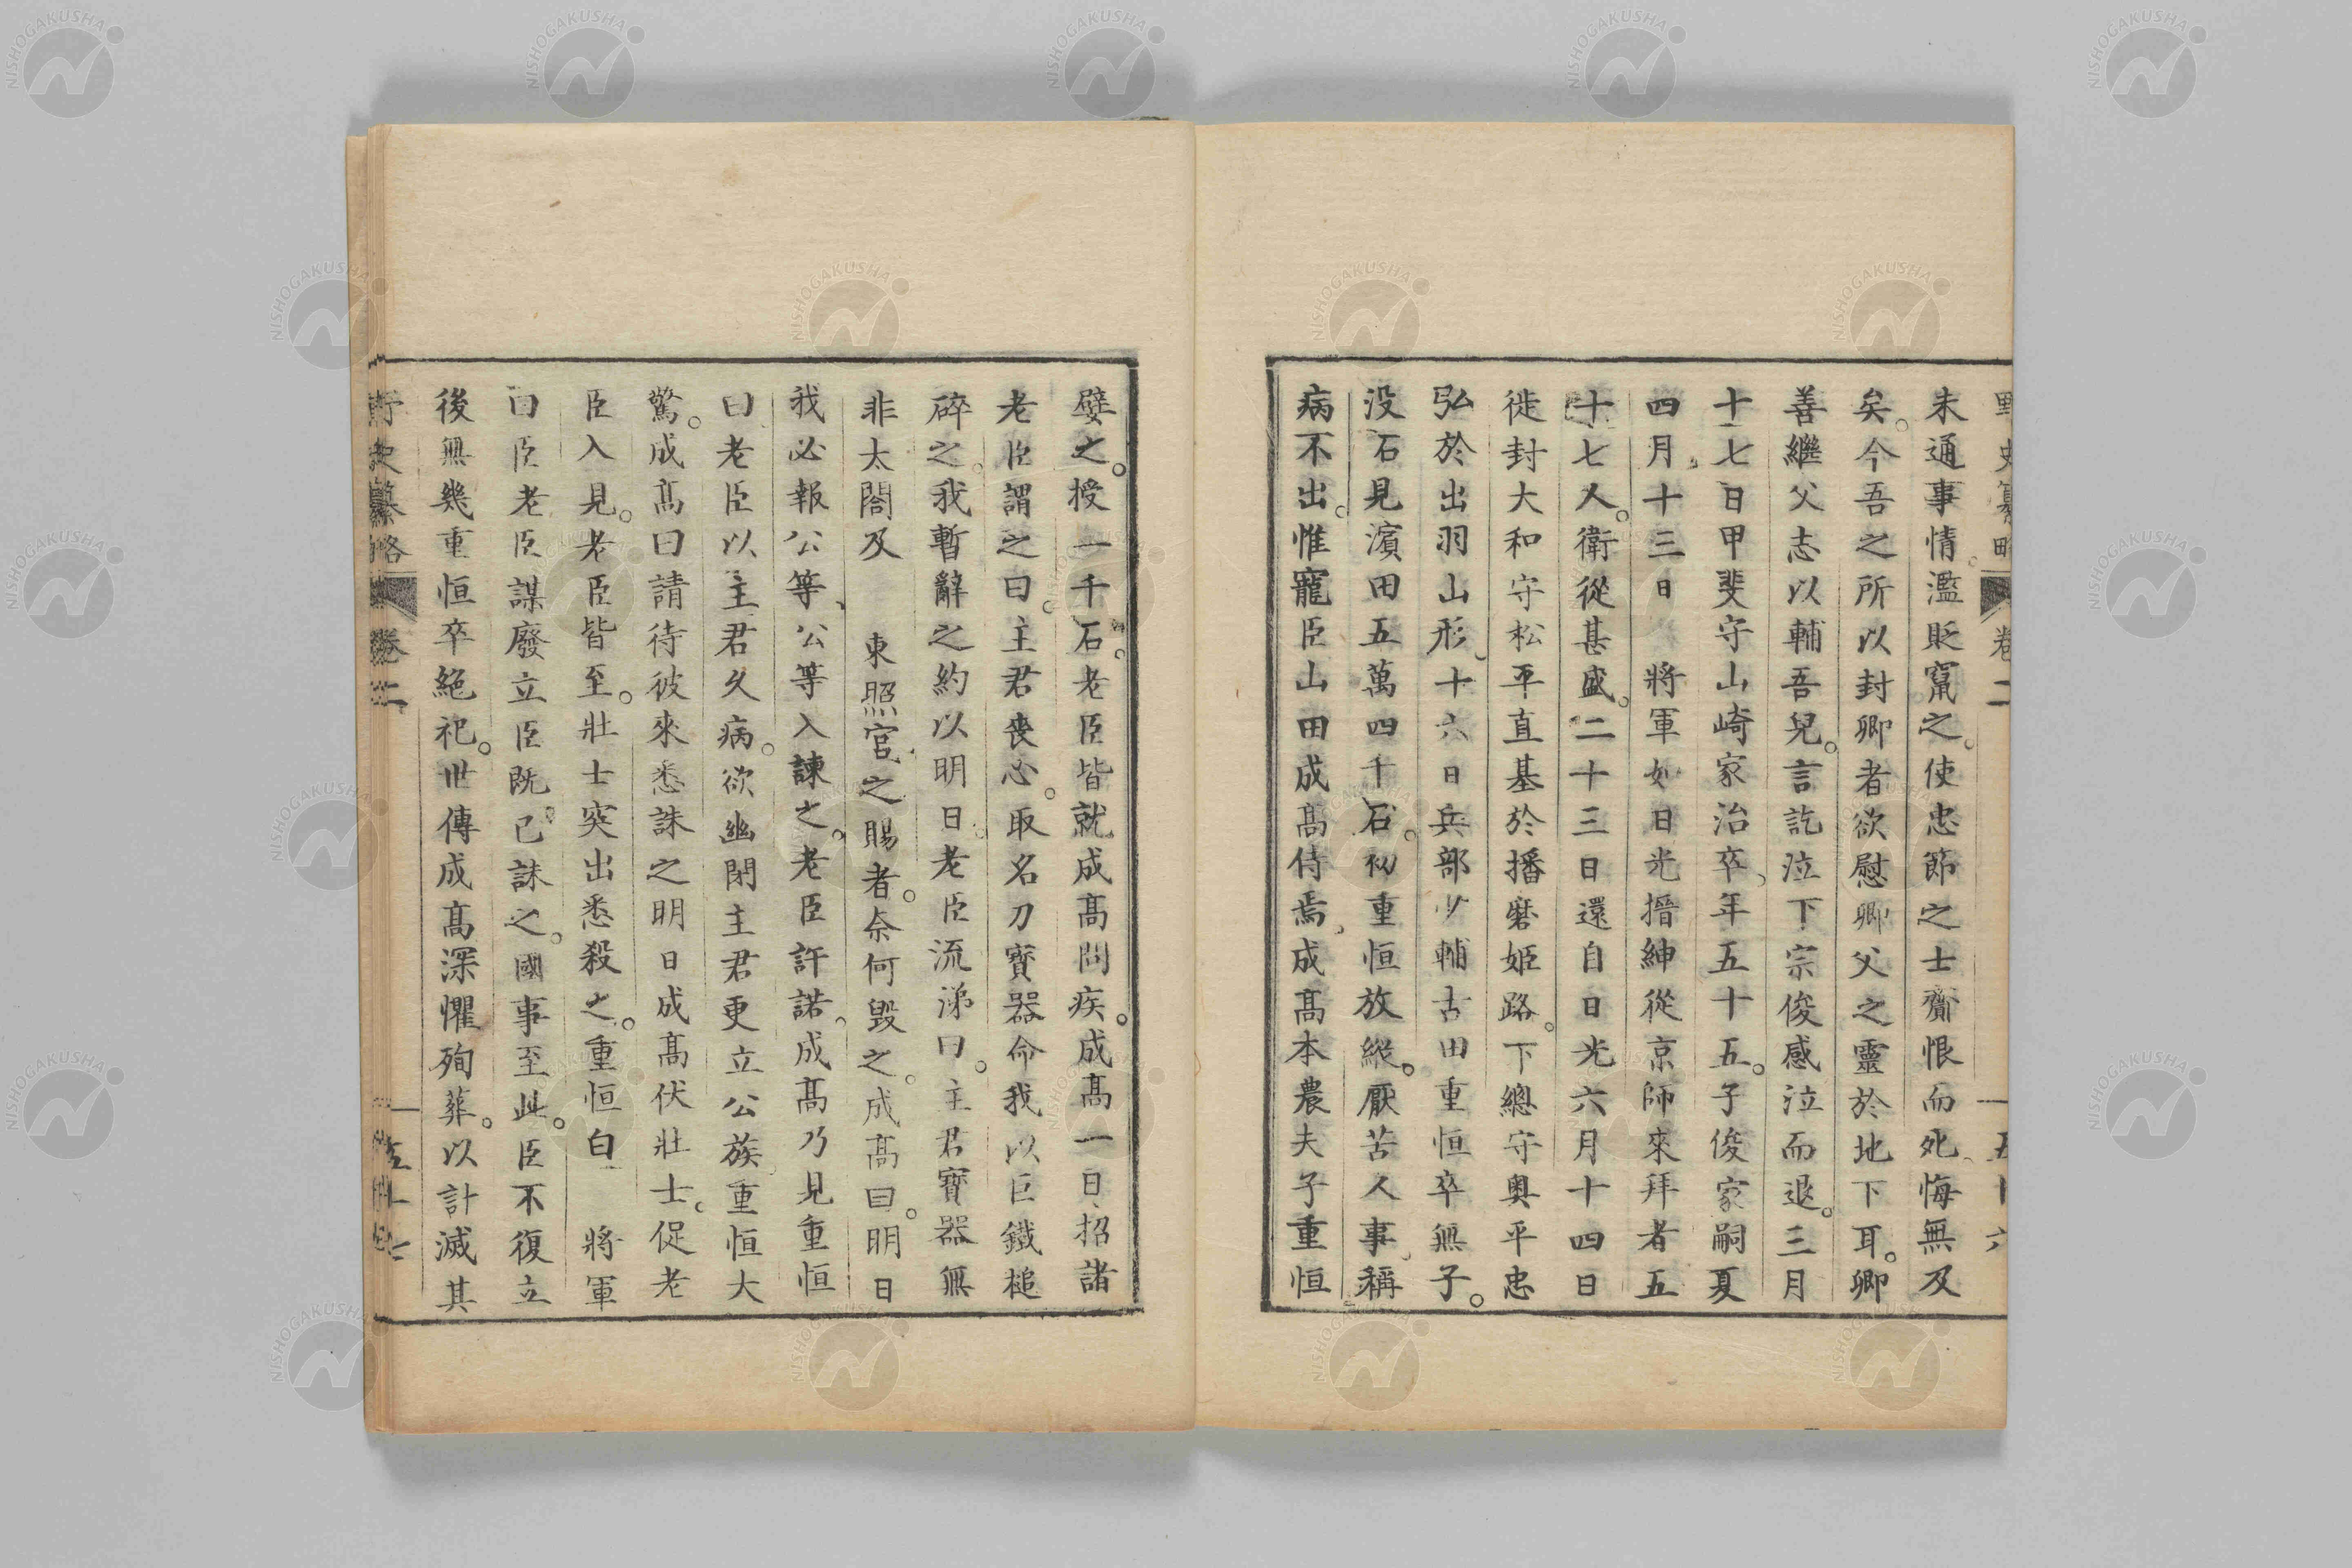 野史纂略 卷二 五十六
未通事情濫貶竄之。使忠節之士齎恨而死、悔無及
矣。今吾之所以封卿者欲慰卿父之靈於地下耳。卿
善繼父志以輔吾兒。言訖泣下宗俊感泣而退。三月
十七日甲斐守山崎家治卒、年五十五。子俊家嗣夏
四月、十三日 將軍如日光搢紳從京師來拜者五
十七人。衛從甚盛。二十三日還自日光六月十四日
徙封大和守松平直基於播磨姬路。下總守奧平忠
弘於出羽山形、十六日兵部少輔古田重恒卒無子。
沒石見濱田五萬四千石。初重恒放縱。厭苦人事、稱
病不出。惟寵臣山田成高侍焉、成高本農夫子重恒
嬖之。授一千石。老臣皆就成高問疾。成高一日招諸
老臣謂之曰。主君喪心。取名刀寶器命我以巨鐵槌
碎之。我暫辭之約以明日。老臣流涕曰。主君寶器無
非太閤及 東照宮之賜者。奈何毀之。成高曰。明日
我必報公等、公等入諫之。老臣許諾。成高乃見重恒
曰老臣以主君久病。欲幽閉主君更立公族、重恒大
驚。成高曰請待彼來悉誅之明日成高伏壯士。促老
臣入見。老臣皆至。壯士突出悉殺之。重恒白 將軍
曰臣老臣謀廢立臣既已誅之。國事至此。臣不復立
後無幾重恒卒絕祀。世傳成高深懼殉葬。以計滅其
野史纂略 卷二 五十七
NISHOGAKUSHA